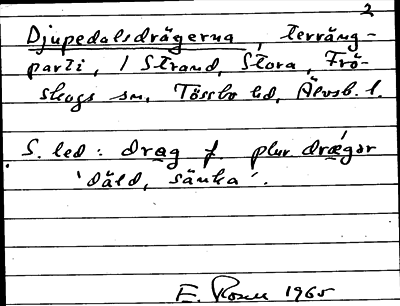 2
Djupedalsdrägerna, terräng-
parti, 1 Strand, Stora, Frö-
skogs sn, Tössbo hd, Älvsb. l.
S. led: drag f. plur. drǽgər
'däld, sänka'.
E. Rosell 1965